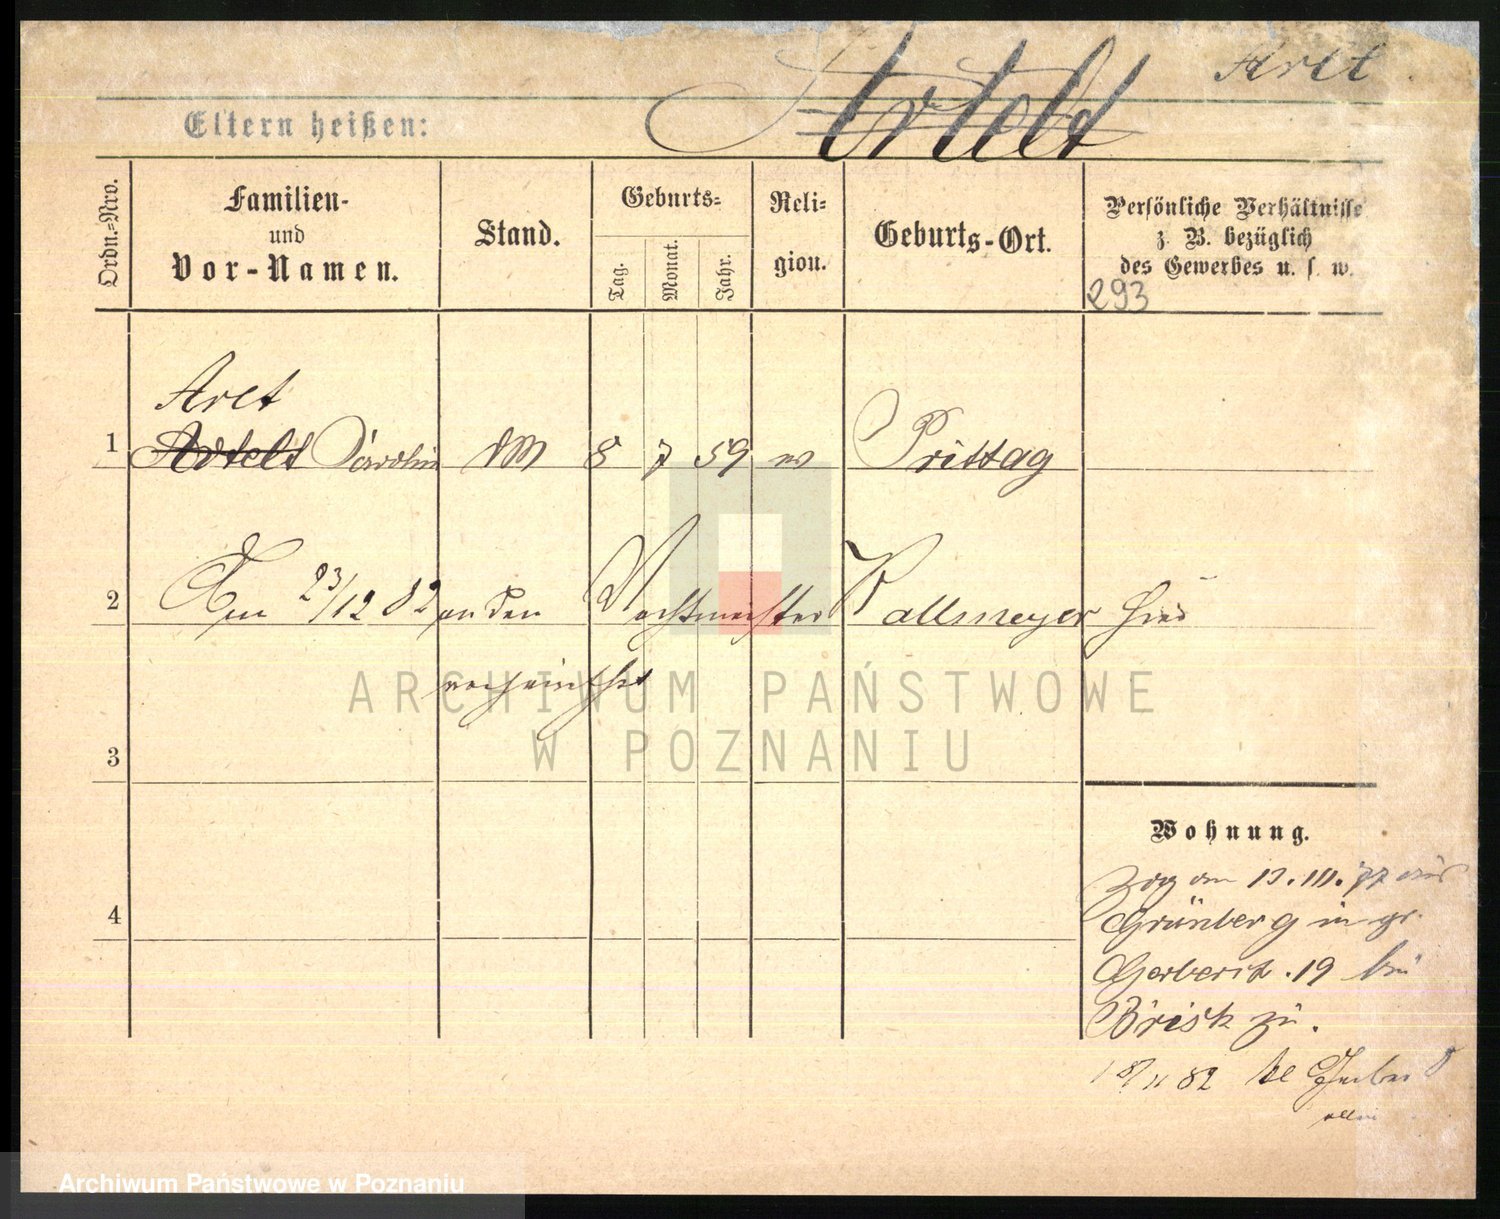 Arlt
Artelt
Eltern heißen:
Ordn.-Nro.
Familien-
und
Vor-Namen.
Stand.
Geburts-
Tag.
Monat.
Jahr.
Reli-
gion.
Geburts-Ort.
Persönliche Verhältnisse
z. B. bezüglich
des Gewerbes u. s. w.
293
Arlt
1 Artelt Carolin 8 7 59 ev Prittag
2 Am 23/12 82 an den Wachtmeister Kallmeyer hier
verheirathet
ARCHIWUM PAŃSTWOWE
W POZNANIU
3
Wohnung.
Zog am 13. III. 77 aus
4
Grünberg in gr.
Gerberst. 19 bei
Brisk zu.
18/11 82 kl Gerber 8
Archiwum Państwowe w Poznaniu